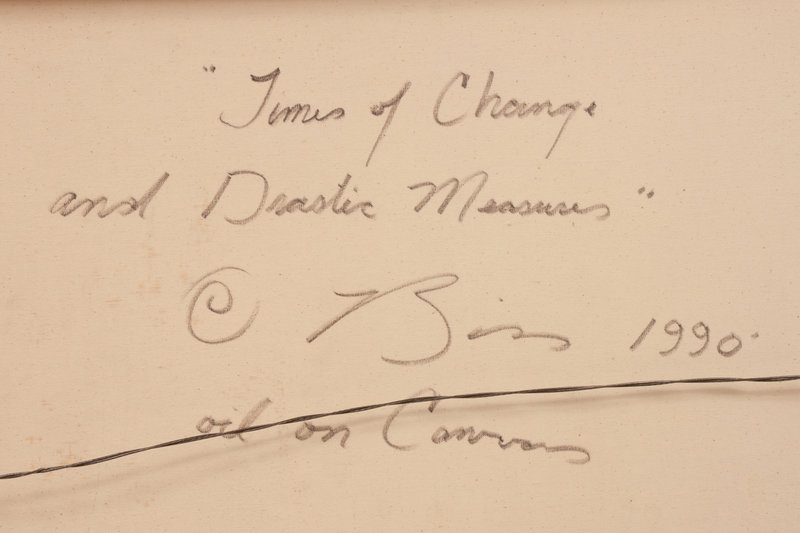 "Times of Change
and Drastic Measures"
© Biss 1990
oil on Canvas